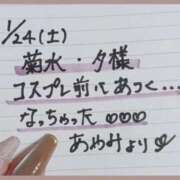 1/24(土)
菊水・夕様
コスプレ前にあつく...
なっちゃった♡♡♡
あやみより♡